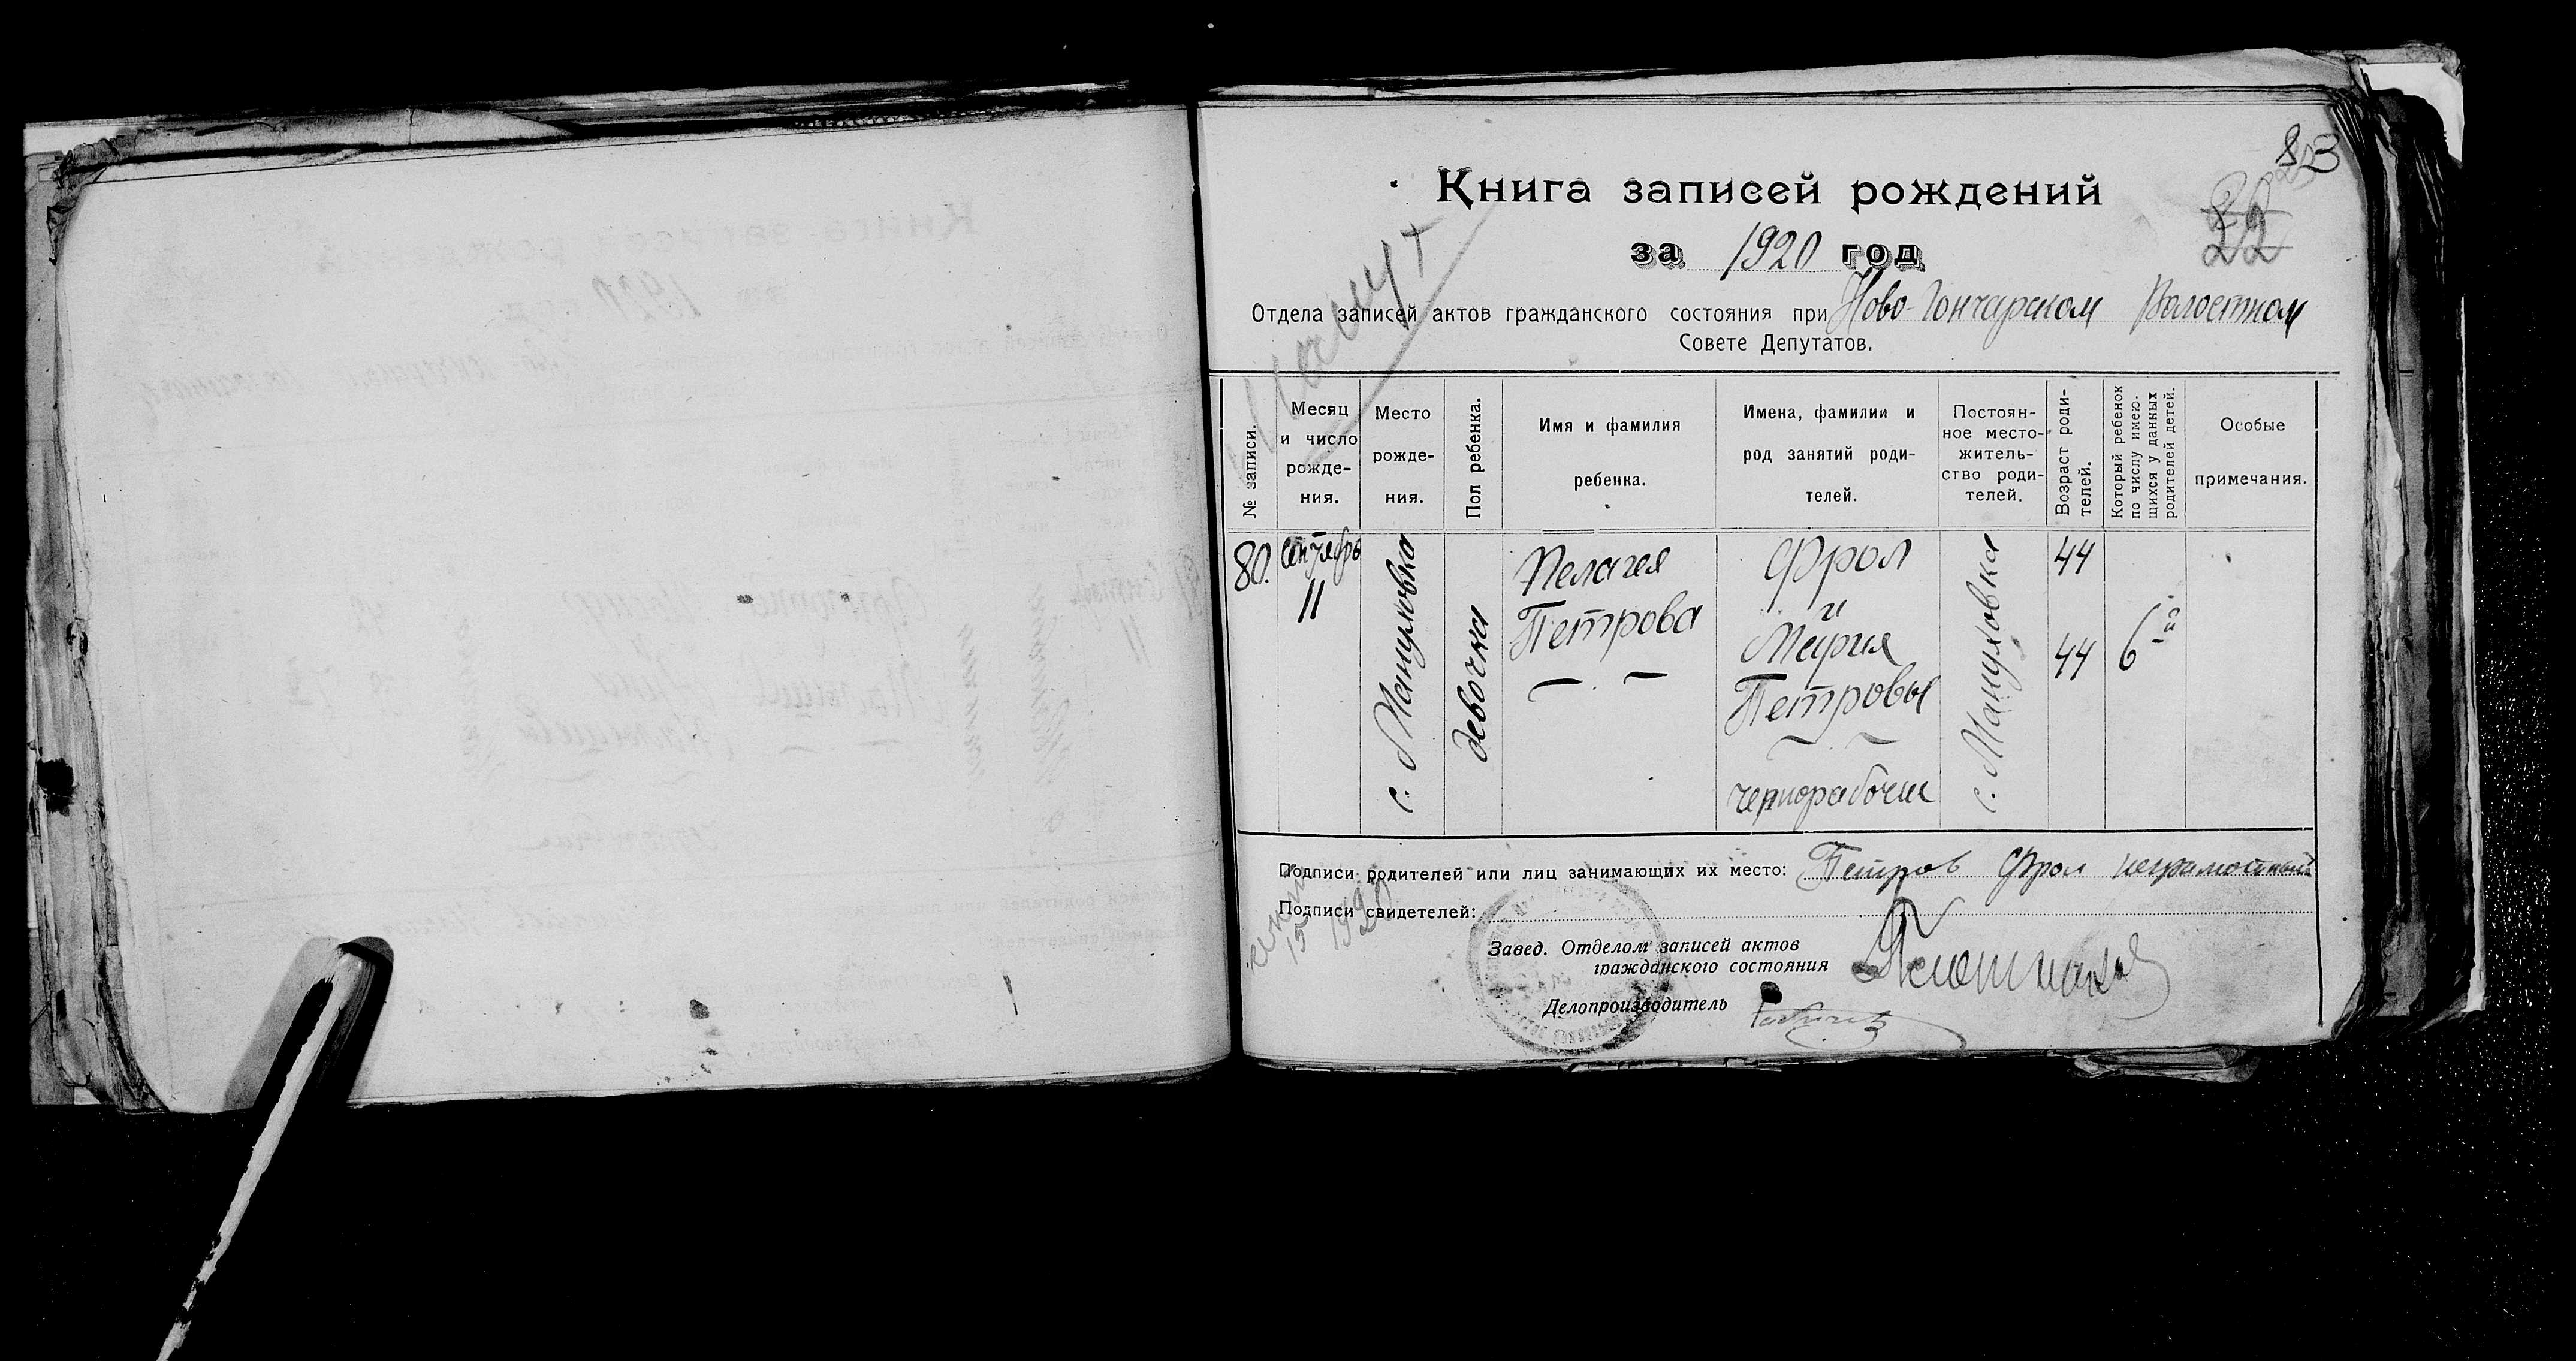 83
22
Книга записей рождений
за 1920 год
Отдела записей актов гражданского состояния при Ново-Гончарском Волостном
Совете Депутатов.
№ записи.
Месяц и число рожде-ния.
Место рожде-ния.
Пол ребенка.
Имя и фамилия ребенка.
Имена, фамилии и род занятий роди-телей.
Постоян-ное место-житель-ство роди-телей.
Возраст роди-телей.
Который ребенок по числу имею-щихся у данных родителей детей.
Особые примечания.
80.
Сентябрь
11
с. Мануховка
девочка
Пелагея
Петрова
Фрол
и
Мария
Петровы
чернорабочие
с. Мануховка
44
44
6-й
Подписи родителей или лиц занимающих их место: Петров Фрол неграмотный
Подписи свидетелей:
Завед. Отделом записей актов
гражданского состояния
Делопроизводитель
15
1920